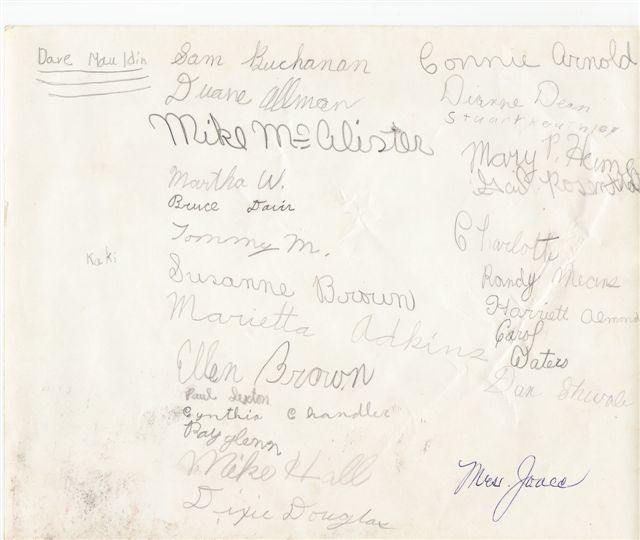 Dave Mauldin
Kaki
Sam Buchanan
Duane Allman
Mike McAlister
Martha W.
Bruce Dain
Tommy M.
Susanne Brown
Marietta Adkins
Ellen Brown
Paul Sexton
Cynthia Chandler
Ray Glenn
Mike Hall
Dixie Douglas
Connie Arnold
Dianne Dean
Stuart
Mary P.
Gail
Charlotte
Randy Means
Harriett Almond
Carol
Waters
Dan
Mrs. Jones